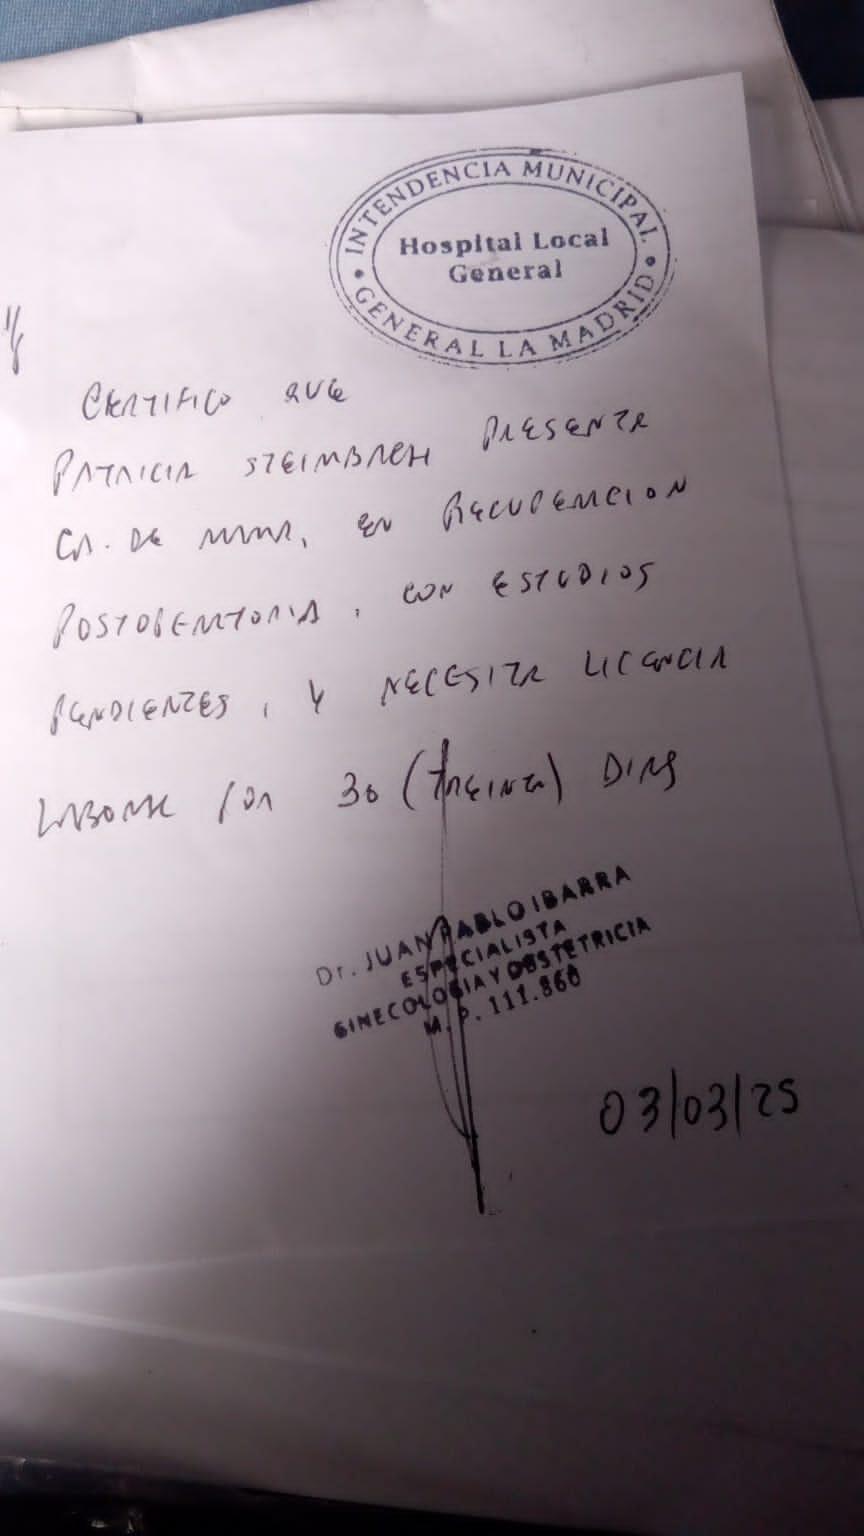 INTENDENCIA MUNICIPAL
Hospital Local
General
GENERAL LA MADRID
CERTIFICO QUE
PATRICIA STEIMBACH PRESENTA
CA. DE MAMA, EN RECUPERACION
POSTOPERATORIA, CON ESTUDIOS
PENDIENTES, Y NECESITA LICENCIA
LABORAL POR 30 (TREINTA) DIAS
Dr. JUAN PABLO IBARRA
ESPECIALISTA
GINECOLOGIA Y OBSTETRICIA
M.P. 111.860
03/03/25